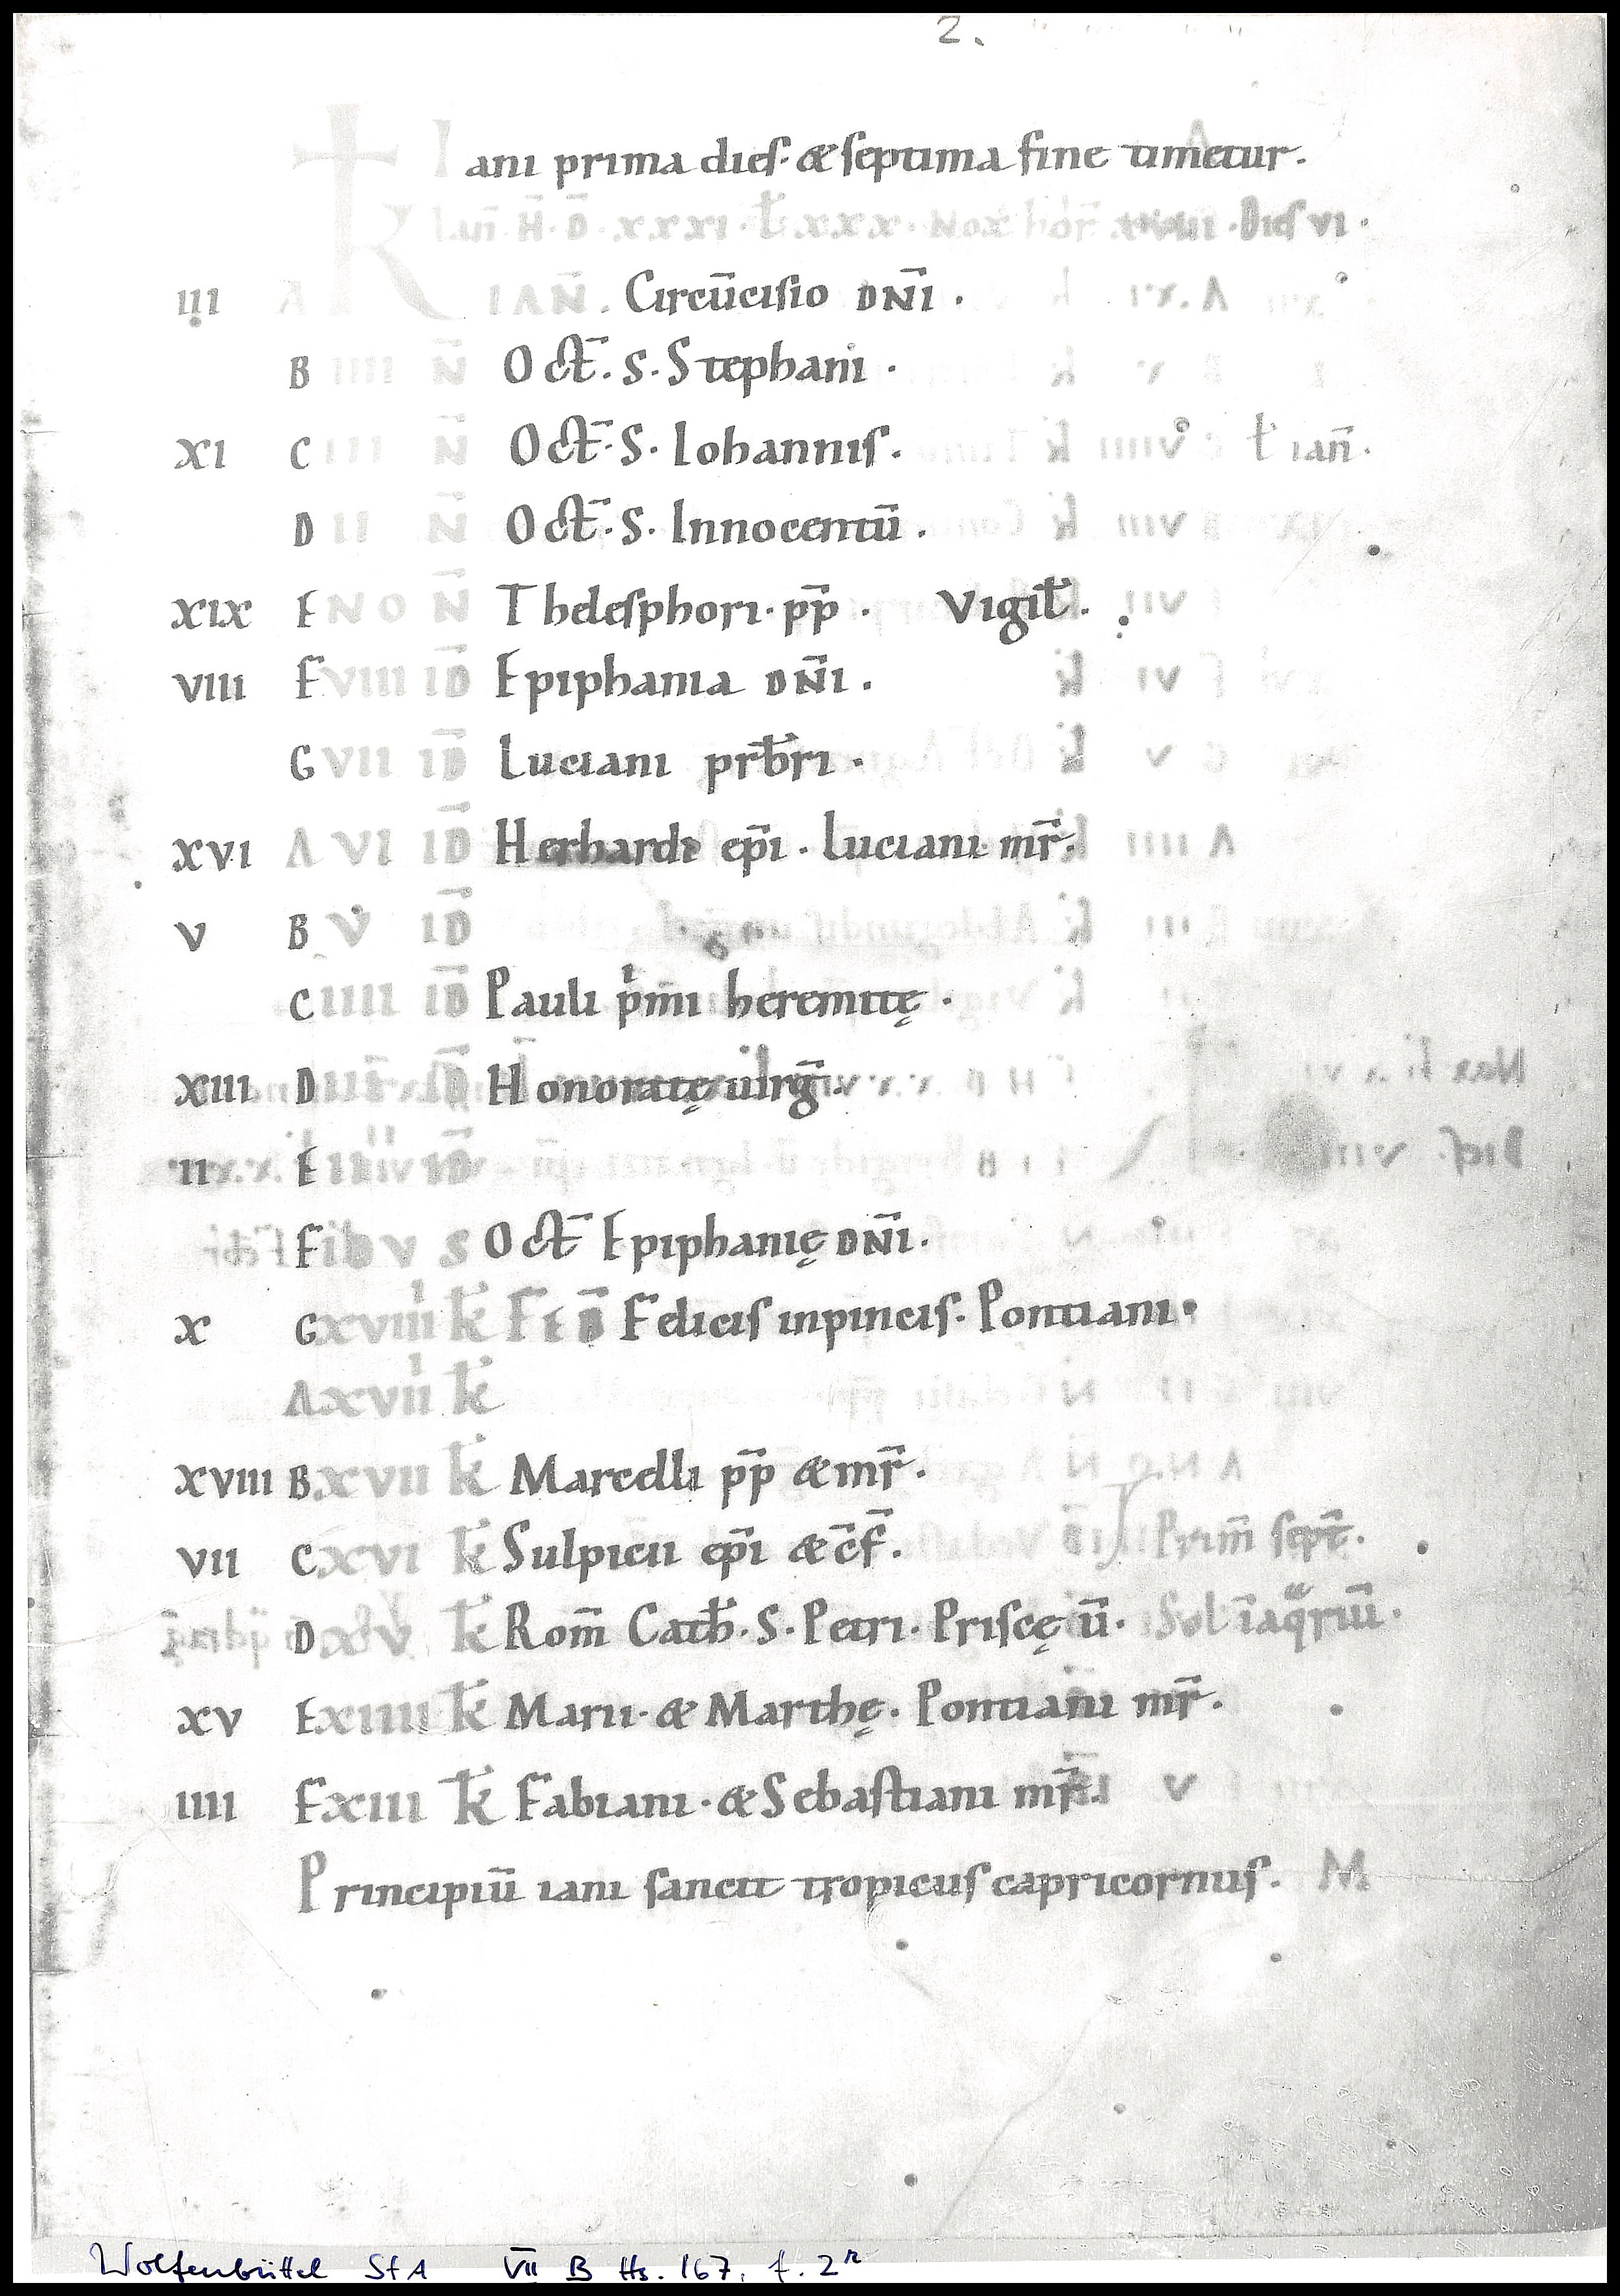 2.
Iani prima dies. & septima fine timetur.
KL Ian̄. H̄. D̄. xxxi. L. xxx. Nox hor̄ xviii. Dies vi.
III A IAN̄. Circūcisio DN̄I.
B IIII N̄ Oct̄. S. Stephani.
XI C III N̄ Oct̄. S. Iohannis. ł ian̄.
D II N̄ Oct̄. S. Innocentū.
XIX E NO N̄ Thelesphori. pp̄. Vigił.
VIII F VIII ID̄ Epiphania DN̄I.
G VII ID̄ Luciani prb̄ri.
XVI A VI ID̄ Herhardi ep̄i. Luciani mr̄.
V B V ID̄
C IIII ID̄ Pauli p̍mi heremitę.
XIII D III ID̄ Honoratę uirḡ.
II E II ID̄
F IDVS Oct̄ Epiphanię DN̄I.
X G XVIIII k̄ FEB̄ Felicis inpincis. Pontiani.
A XVIII k̄
XVIII B XVII k̄ Marcelli pp̄ & mr̄.
VII C XVI k̄ Sulpicii ep̄i & c̄f. Prim̄ sept̄.
D XV k̄ Rom̄ Cath̄. S. Petri. Priscę ū. Sol īaq̄riū.
XV E XIIII k̄ Marii. & Marthę. Pontiani mr̄.
IIII F XIII k̄ Fabiani. & Sebastiani mr̄.
Principiū iani sancit tropicus capricornus. M
Wolfenbüttel StA VII B Hs. 167, f. 2r